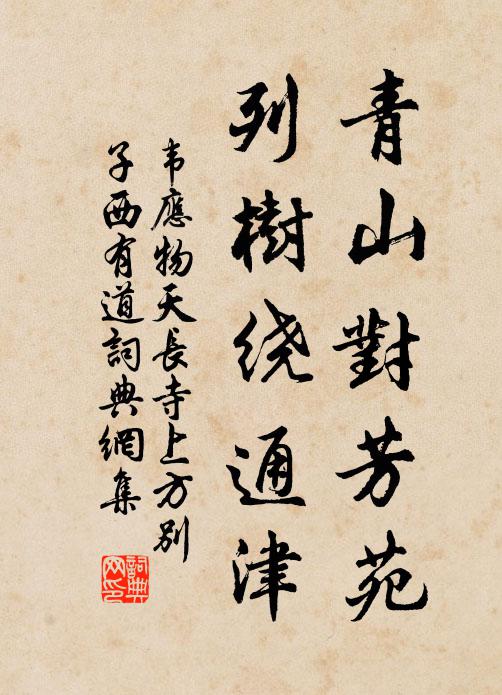 青山對芳苑
列樹绕通津
韦應物天長寺上方别
子西有道詞典網集
詞典网印